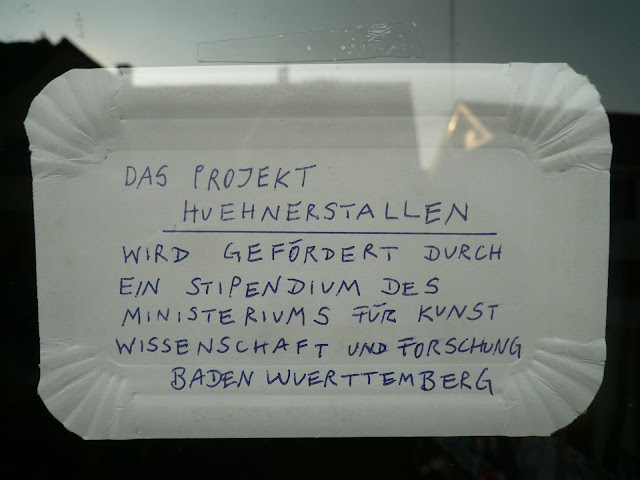 DAS PROJEKT
HUEHNERSTALLEN
WIRD GEFÖRDERT DURCH
EIN STIPENDIUM DES
MINISTERIUMS FÜR KUNST
WISSENSCHAFT UND FORSCHUNG
BADEN WUERTTEMBERG